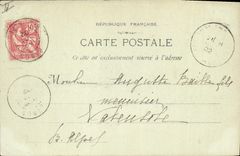 RÉPUBLIQUE FRANÇAISE
CARTE POSTALE
Ce côté est exclusivement réservé à l'adresse
Monsieur Auguste Baille fils
menuisier
Valensole
B. Alpes